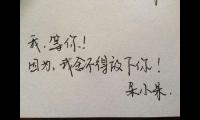 我，等你！
因为，我舍不得放下你！
朵小朵.